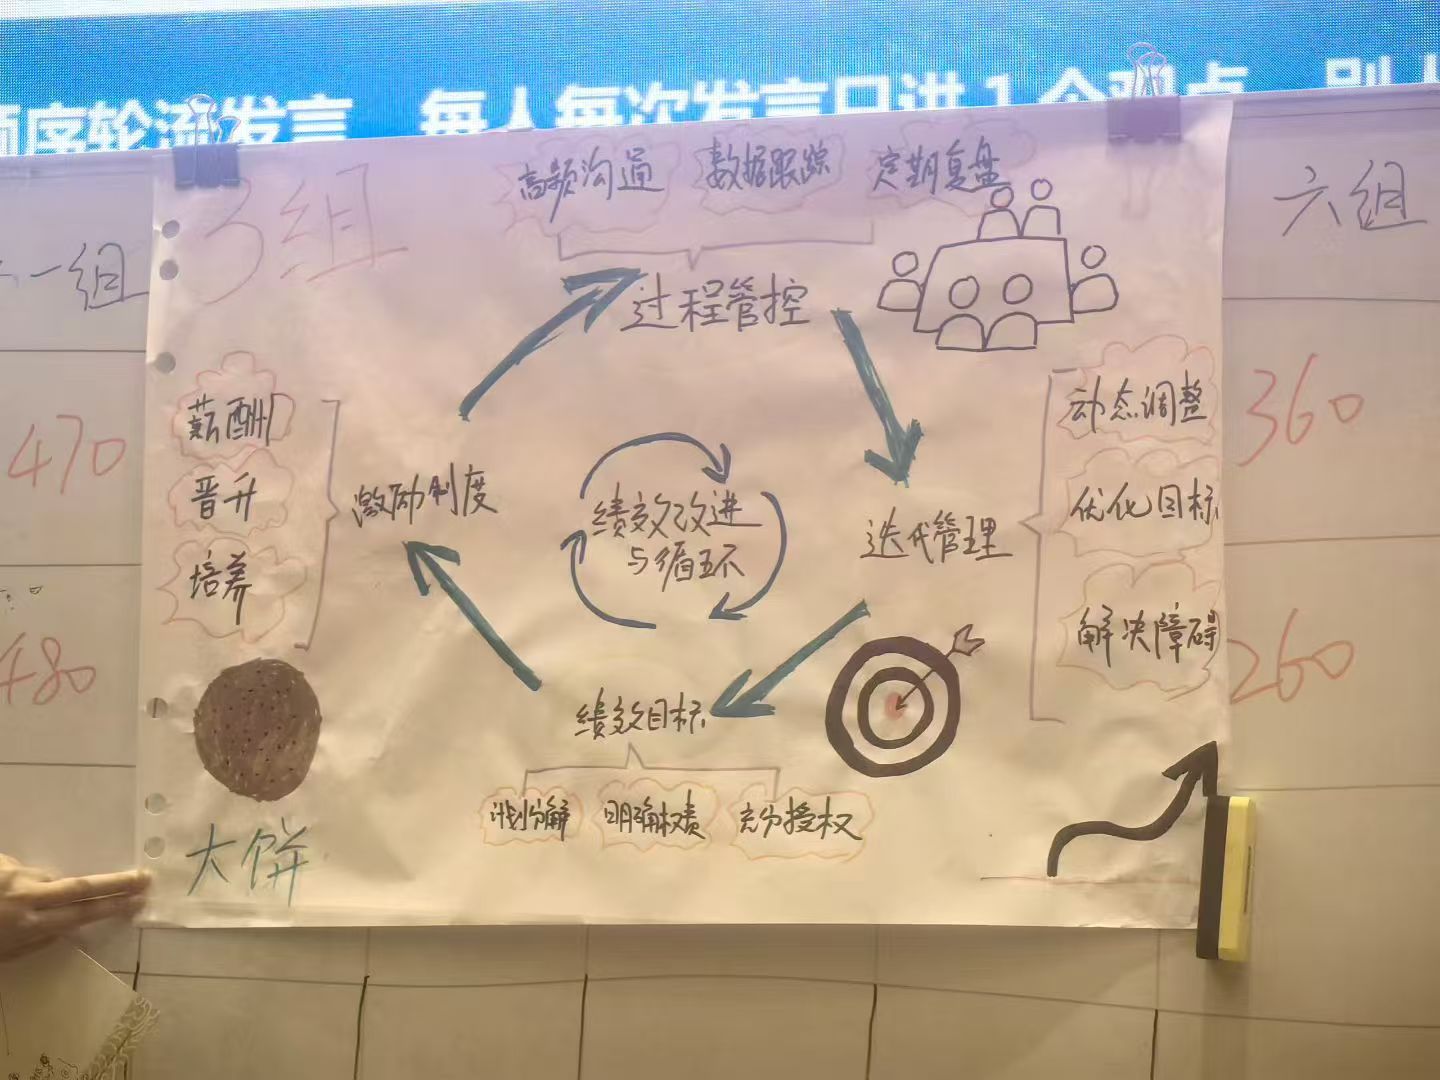 序轮流发言
每人每次发言只讲1个观点
3组
一组
六组
470
480
360
260
高频沟通
数据跟踪
定期复盘
过程管控
薪酬
晋升
培养
激励制度
绩效改进
与循环
迭代管理
动态调整
优化目标
解决障碍
绩效目标
计划分解
明确权责
充分授权
大饼